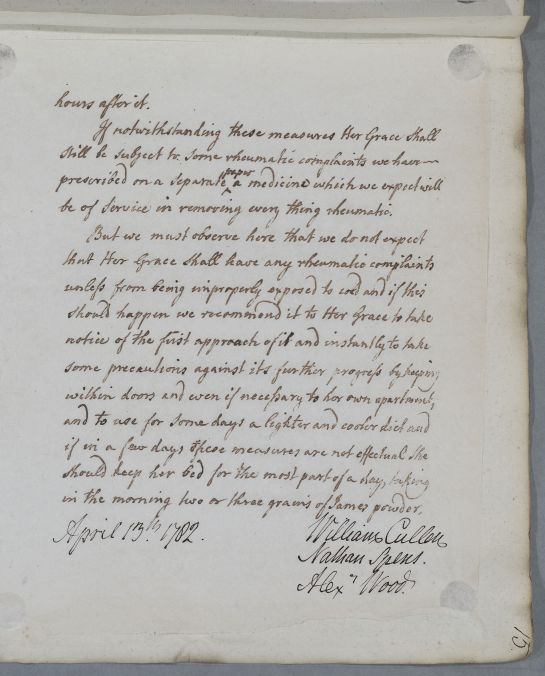 hours after it.
If notwithstanding these measures Her Grace shall
still be subject to some rheumatic complaints we have
prescribed on a separate paper a medicine which we expect will
be of service in removing every thing rheumatic.
But we must observe here that we do not expect
that Her Grace shall have any rheumatic complaints
unless from being improperly exposed to cold and if this
should happen we recommend it to Her Grace to take
notice of the first approach of it and instantly to take
some precautions against its further progress by keeping
within doors and even if necessary to her own apartment,
and to use for some days a lighter and cooler diet and
if in a few days these measures are not effectual she
should keep her bed for the most part of a day, taking
in the morning two or three grains of James powder.
April 13th 1782.
William Cullen
Nathan Spens.
Alexr Wood.
15